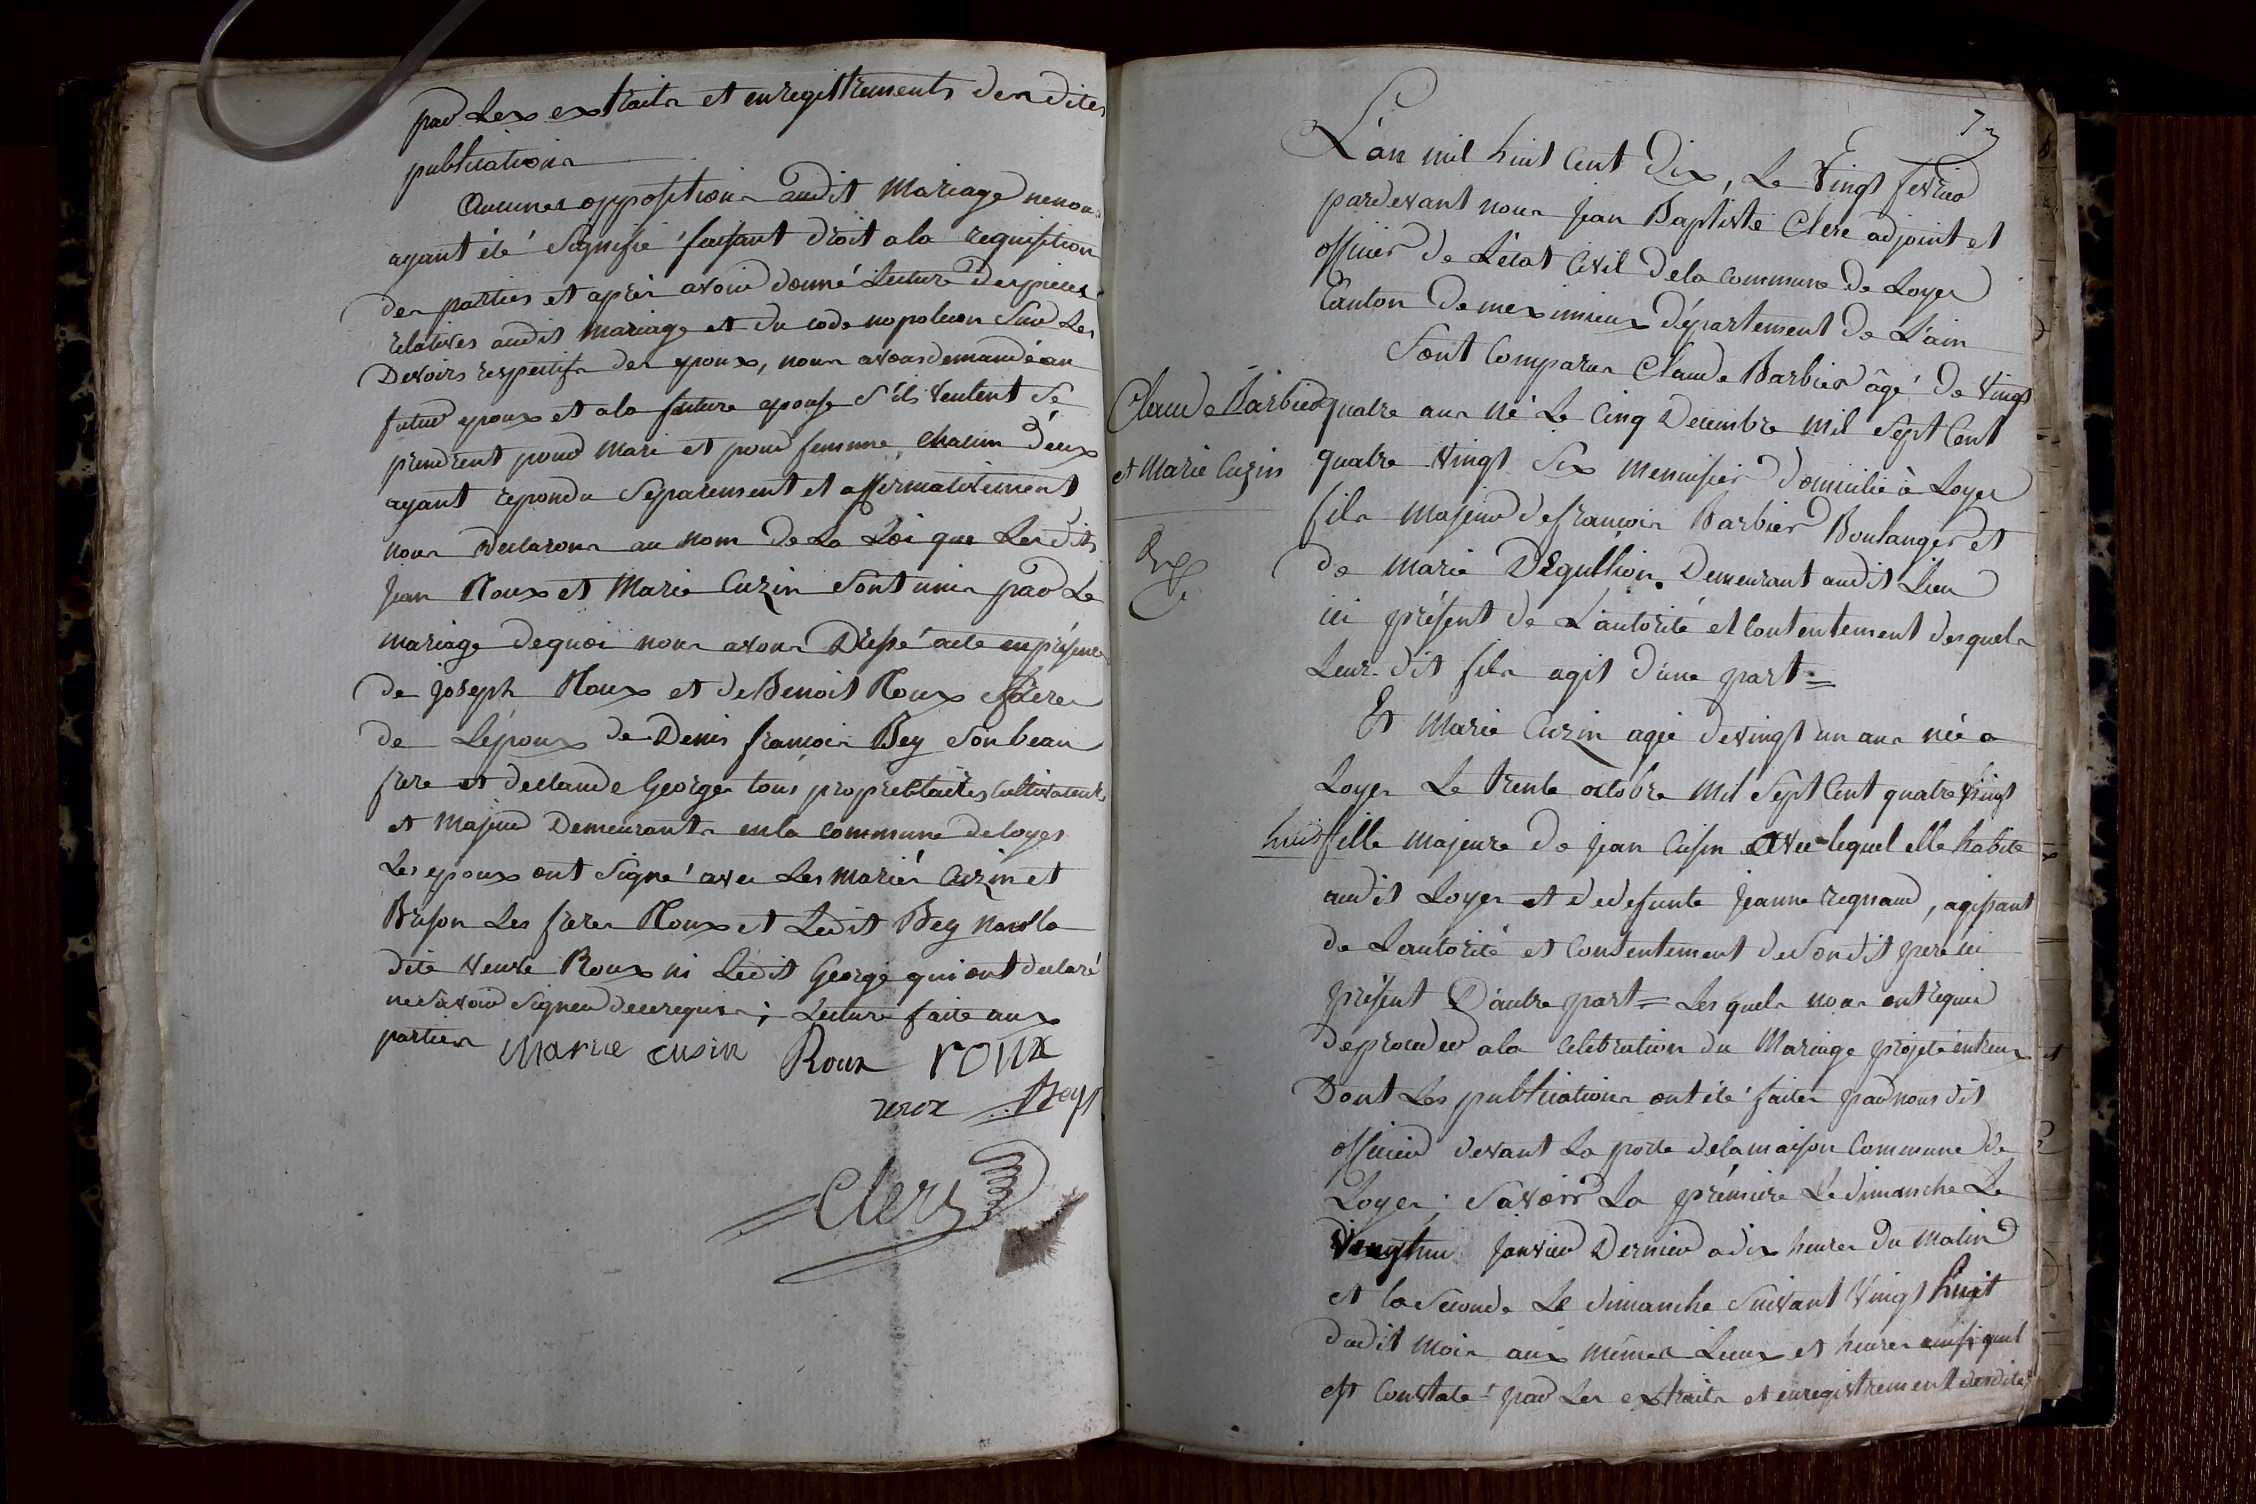 par Les extraits et enregistrements desdites
publications
Aucunes oppositions audit Mariage ne nous
ayant été signifié faisant droit a la requisition
des parties et après avoir donné Lecture des pieces
relatives audit mariage et du code napoleon Sur Les
Devoirs respectifs des epoux, nous avons demandé au
futur epoux et a la future epouse s'ils veulent Se
prendrent pour Mari et pour femme, chacun d'eux
ayant repondu séparement et affirmativement
nous declarons au nom de La Loi que Lesdits
Jean Roux et Marie Cuzin sont unis par Le
mariage dequoi nous avons Dressé acte en présence
de joseph Roux et de Benoit Roux frères
de Lépoux de Denis françois Bey Son beau
frere et de claude George tous proprietaires Cultivateurs
et Majeur Demeurants en la commune de loyes
Les epoux ont Signé avec Les mariés Cuzin et
Brison Les freres Roux et Ledit Bey non la
dite veuve Roux ni Ledit George qui ont declaré
ne Savoir Signer de ce requis ; Lecture faite aux
parties Marie cusin Roux roux
roux Bey
Clerc
73
L'an mil huit Cent Dix, Le Vingt fevrier
pardevant nous Jean Baptiste Clerc adjoint et
officier de L'état Civil de la commune de Loyes
Canton de meximieux département de L'ain
Sont Comparus Claude Barbier âgé de Vingt
Claude Barbier
et Marie Cuzin
quatre ans né Le Cinq Decembre Mil Sept Cent
quatre Vingt Six menuisier domicilié à Loyes
fils majeur de françois Barbier Boulanger et
de marie Deguillion. Demeurant audit Lieu
ici présent de L'autorité et Contentement desquels
Leur dit fils agit d'une part =
Et Marie Cuzin agée de vingt un ans née a
Loyes Le trente octobre Mil Sept Cent quatre Vingt
huit fille majeure de jean Cusin avec lequel elle habite
audit Loyes et de defunte jeanne regnaud, agissant
de Lautorité et Contentement de Son dit pere ici
présent D'autre part = Lesquels nous ont requis
de proceder a la Celebration du Mariage projeté entreux
Dont Les publications ont été faites par nous dit
officier devant La porte de la maison Commune de
Loyes ; Savoir La prémiere Le dimanche Le
Vingt un Janvier Dernier a dix heures du Matin
et la Seconde Le dimanche Suivant Vingt huit
dudit Mois aux mêmes Lieux et heures ainsi quil
est Constaté par Les extraits et enregistrement desdites